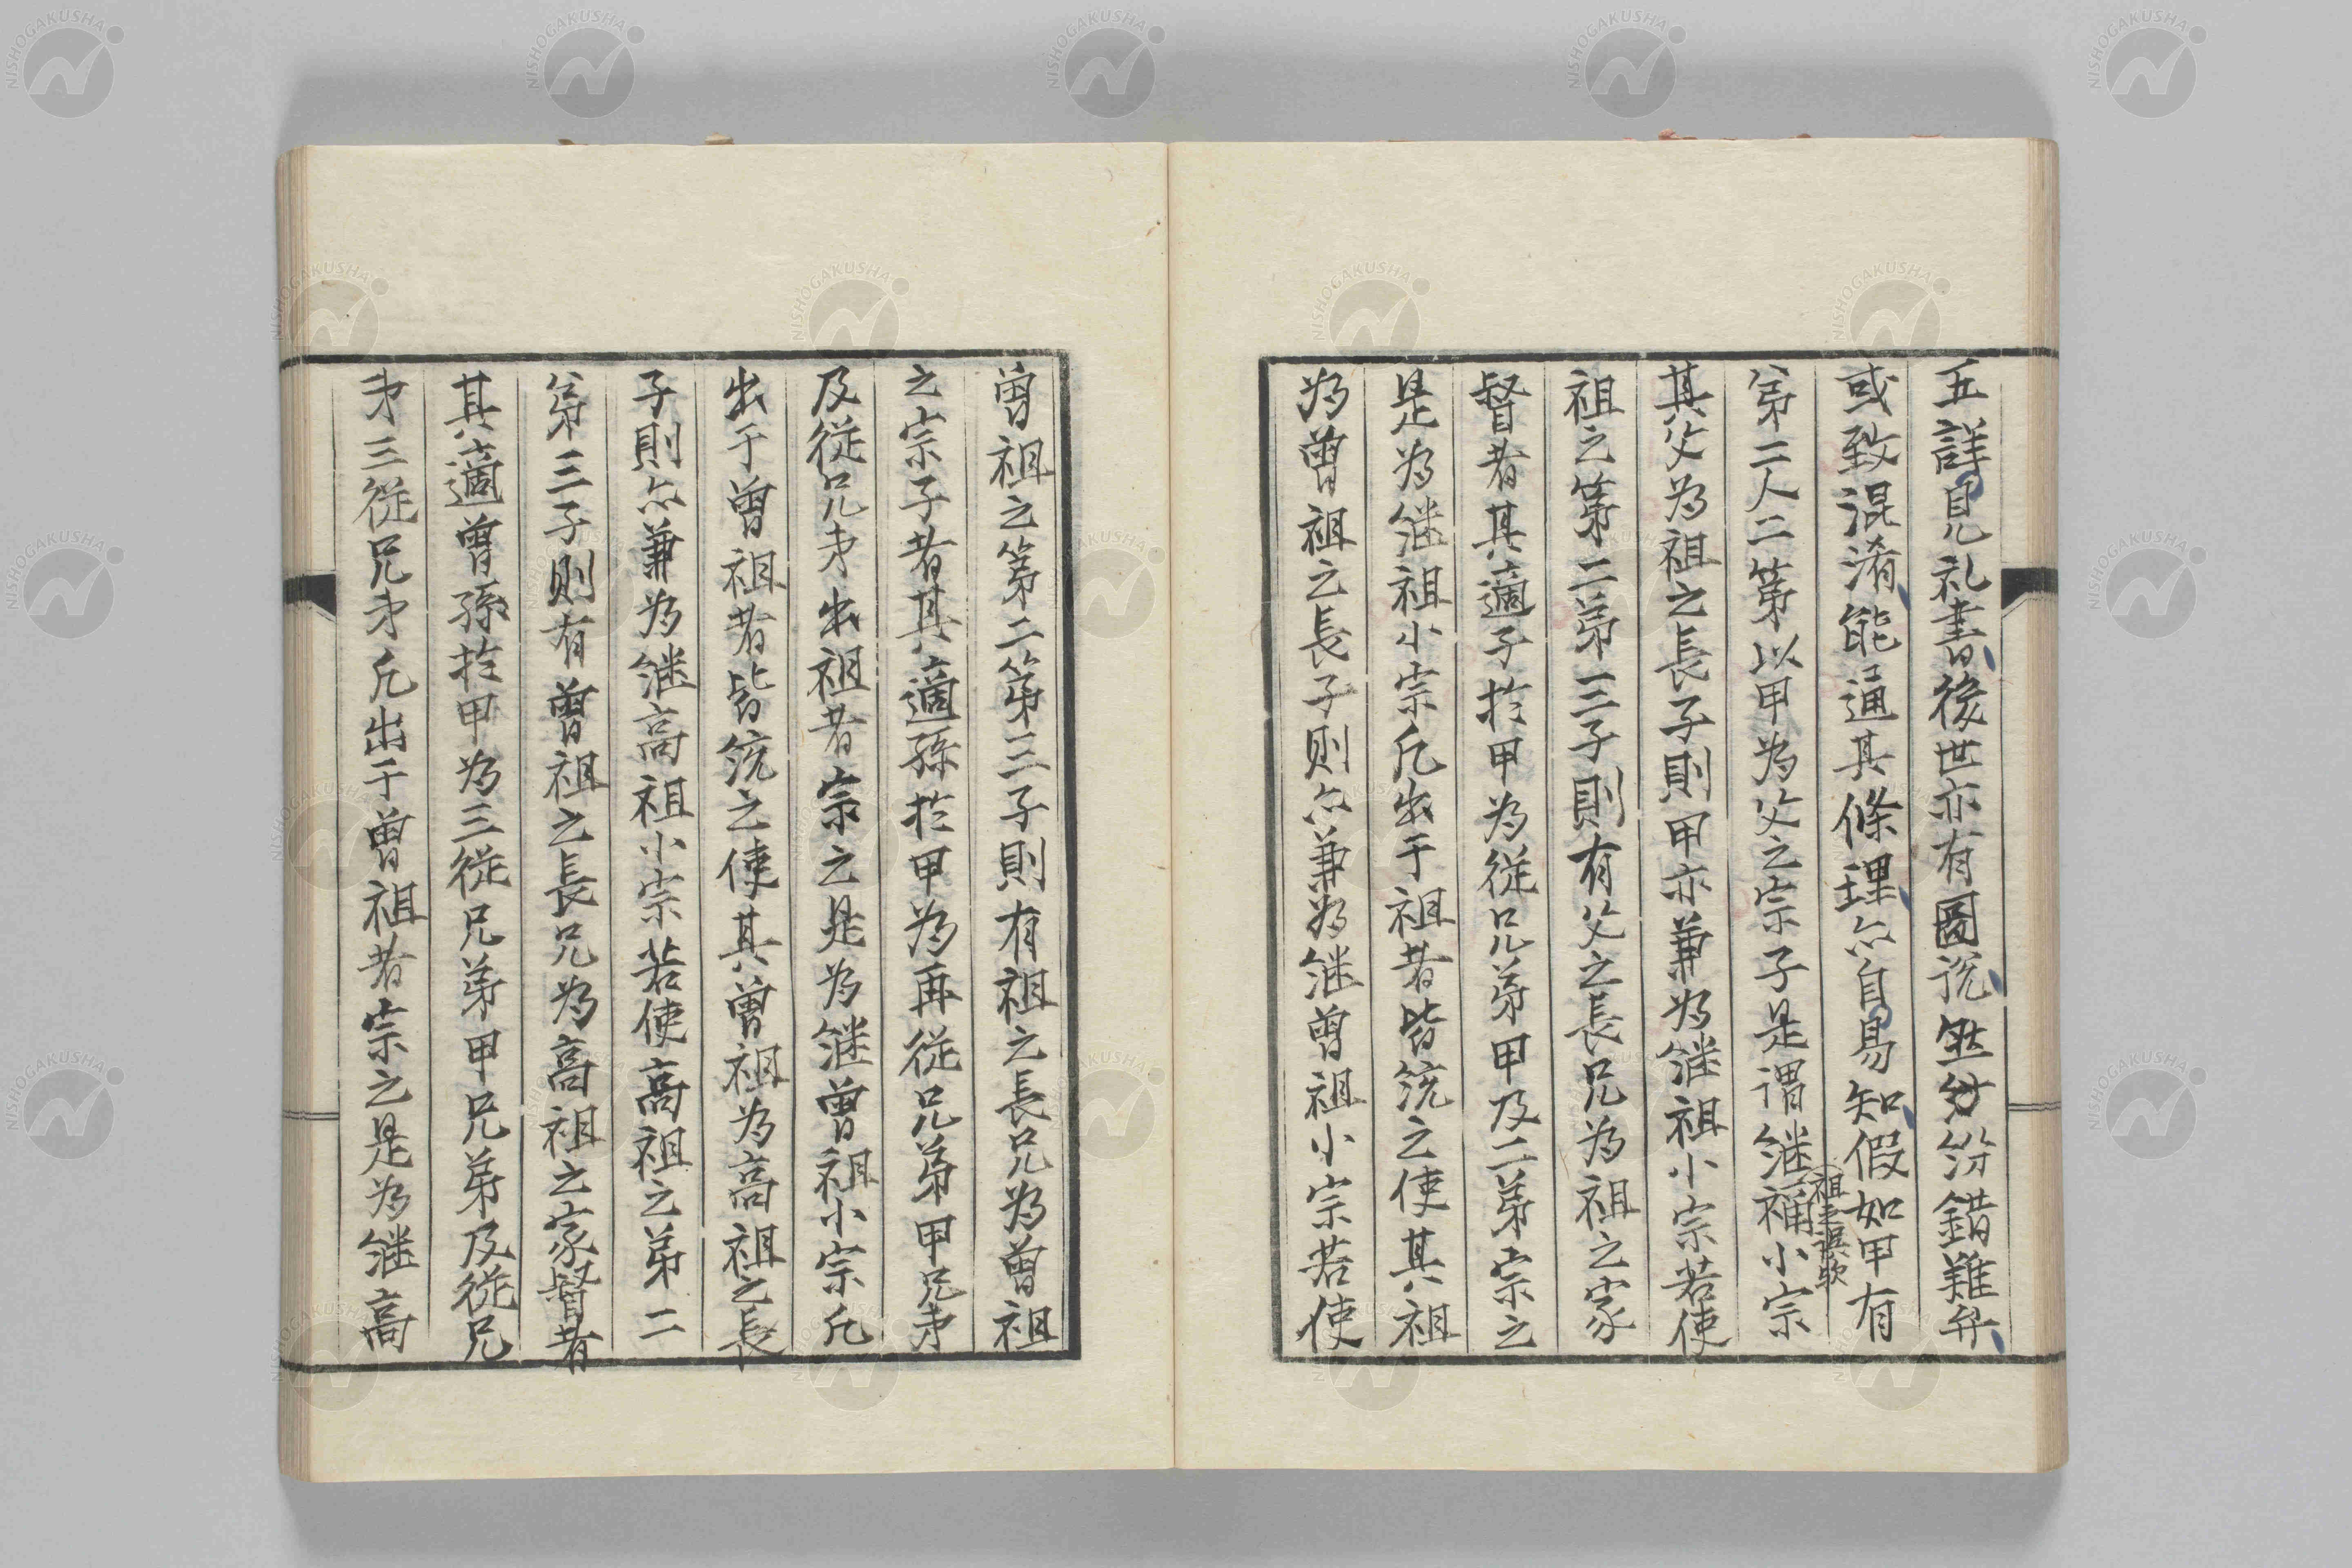 五詳見礼書後世亦有圖説坐紛紛錯難弁
或致混淆能通其條理亦自易知假如甲有
第二人二第以甲為父之宗子是謂継補小宗
祖之誤歟
其父為祖之長子則甲亦兼為継祖小宗若使
祖之第二第三子則有父之長兄為祖之家
督者其適子於甲為従兄弟甲及二弟宗之
是為継祖小宗凡出于祖者皆統之使其祖
為曽祖之長子則亦兼為継曽祖小宗若使
曽祖之第二第三子則有祖之長兄為曽祖
之宗子者其適孫於甲為再従兄弟甲兄弟
及従兄弟出祖者宗之是為継曽祖小宗凡
出于曽祖者皆統之使其曽祖為高祖之長
子則亦兼為継高祖小宗若使高祖之第二
第三子則有曽祖之長兄為高祖之家督者
其適曽孫於甲為三従兄弟甲兄弟及従兄
弟三従兄弟凡出于曽祖者宗之是為継高
NISHOGAKUSHA